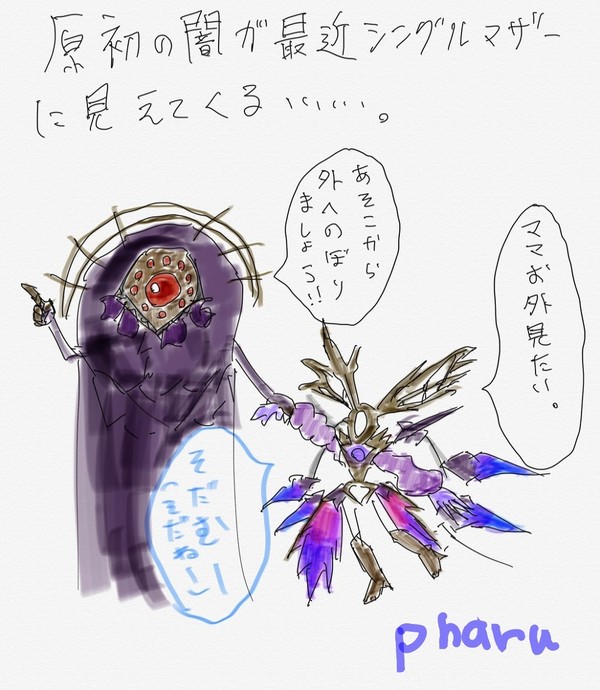 原初の闇が最近シングルマザー
に見えてくる……。
あそこから
外へのぼり
ましょう!!
ママお外見たい。
そだむー
(えだねー)
pharu